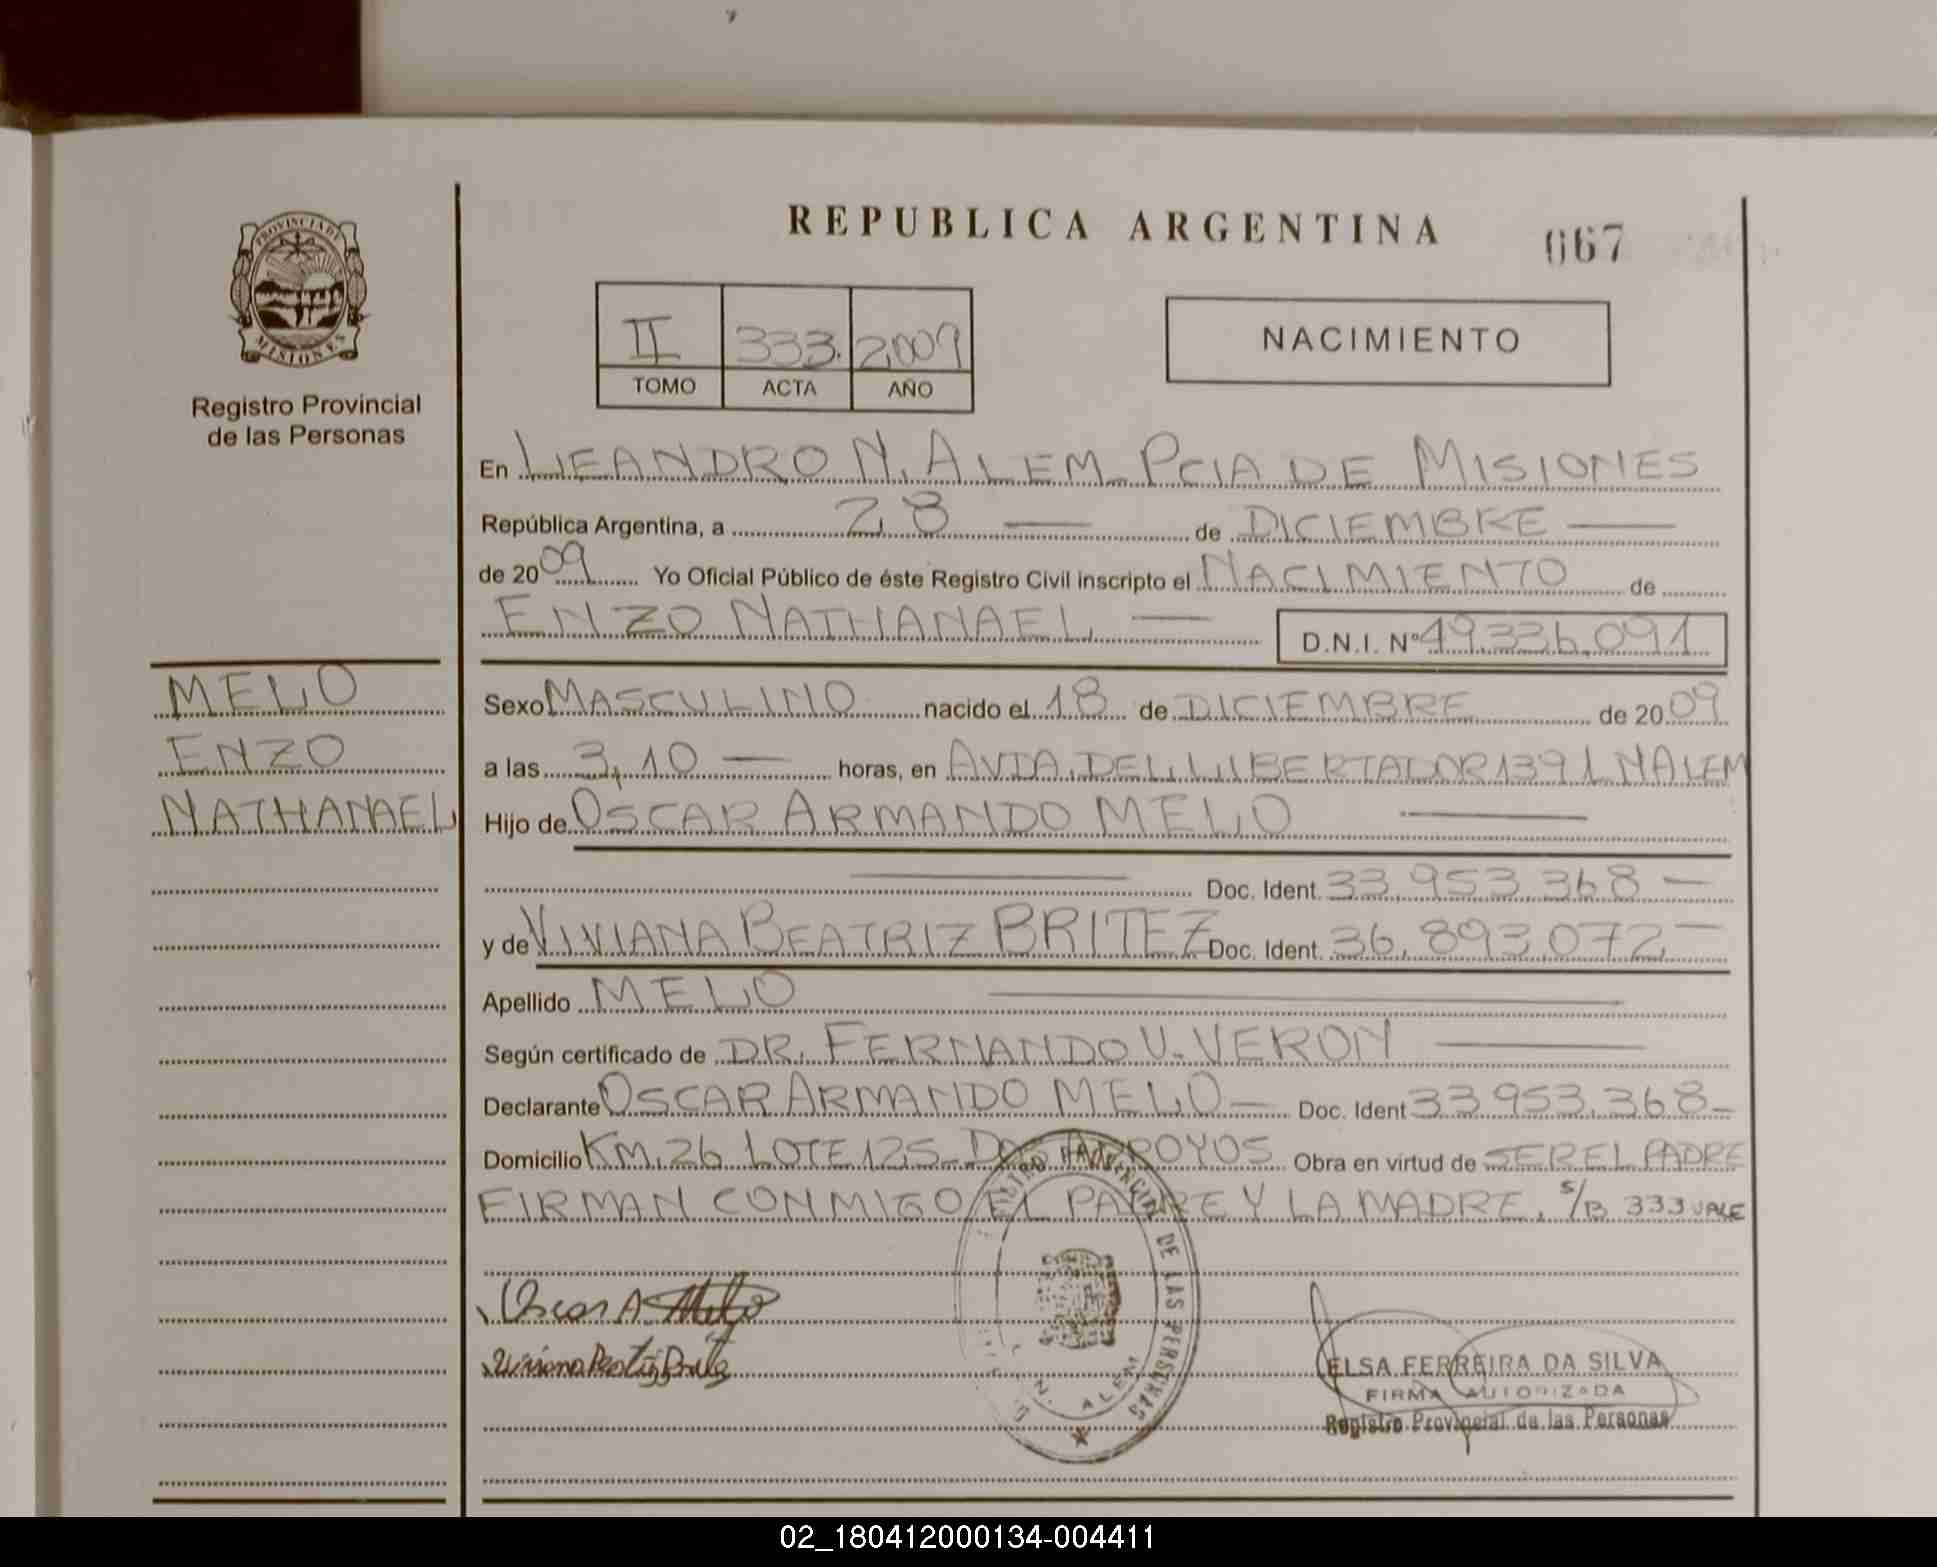 REPUBLICA ARGENTINA
067
PROVINCIA DE
MISIONES
Registro Provincial
de las Personas
II 333. 2009
TOMO ACTA AÑO
NACIMIENTO
En LEANDRO N. ALEM - PCIA DE MISIONES
República Argentina, a 28 — de DICIEMBRE —
de 2009 Yo Oficial Público de éste Registro Civil inscripto el NACIMIENTO de
ENZO NATHANAEL — D.N.I. Nº 49.336.091
MELO
ENZO
NATHANAEL
Sexo MASCULINO nacido el 18 de DICIEMBRE de 2009
a las 3,10 — horas, en AVDA. DEL LIBERTADOR 1391 N ALEM
Hijo de OSCAR ARMANDO MELO —
— Doc. Ident. 33.953.368 —
y de VIVIANA BEATRIZ BRITEZ Doc. Ident. 36.893.072 —
Apellido MELO —
Según certificado de DR. FERNANDO V. VERON —
Declarante OSCAR ARMANDO MELO — Doc. Ident 33953.368 -
Domicilio KM. 26 LOTE 125 - ARROYOS Obra en virtud de SER EL PADRE
FIRMAN CONMIGO EL PADRE Y LA MADRE. S/B 333 VALE
Oscar A. Melo
Viviana Beatriz Britez
PROVINCIAL DE LAS PERSONAS
N. ALEM
ELSA FERREIRA DA SILVA
FIRMA AUTORIZADA
Registro Provincial de las Personas
02_180412000134-004411